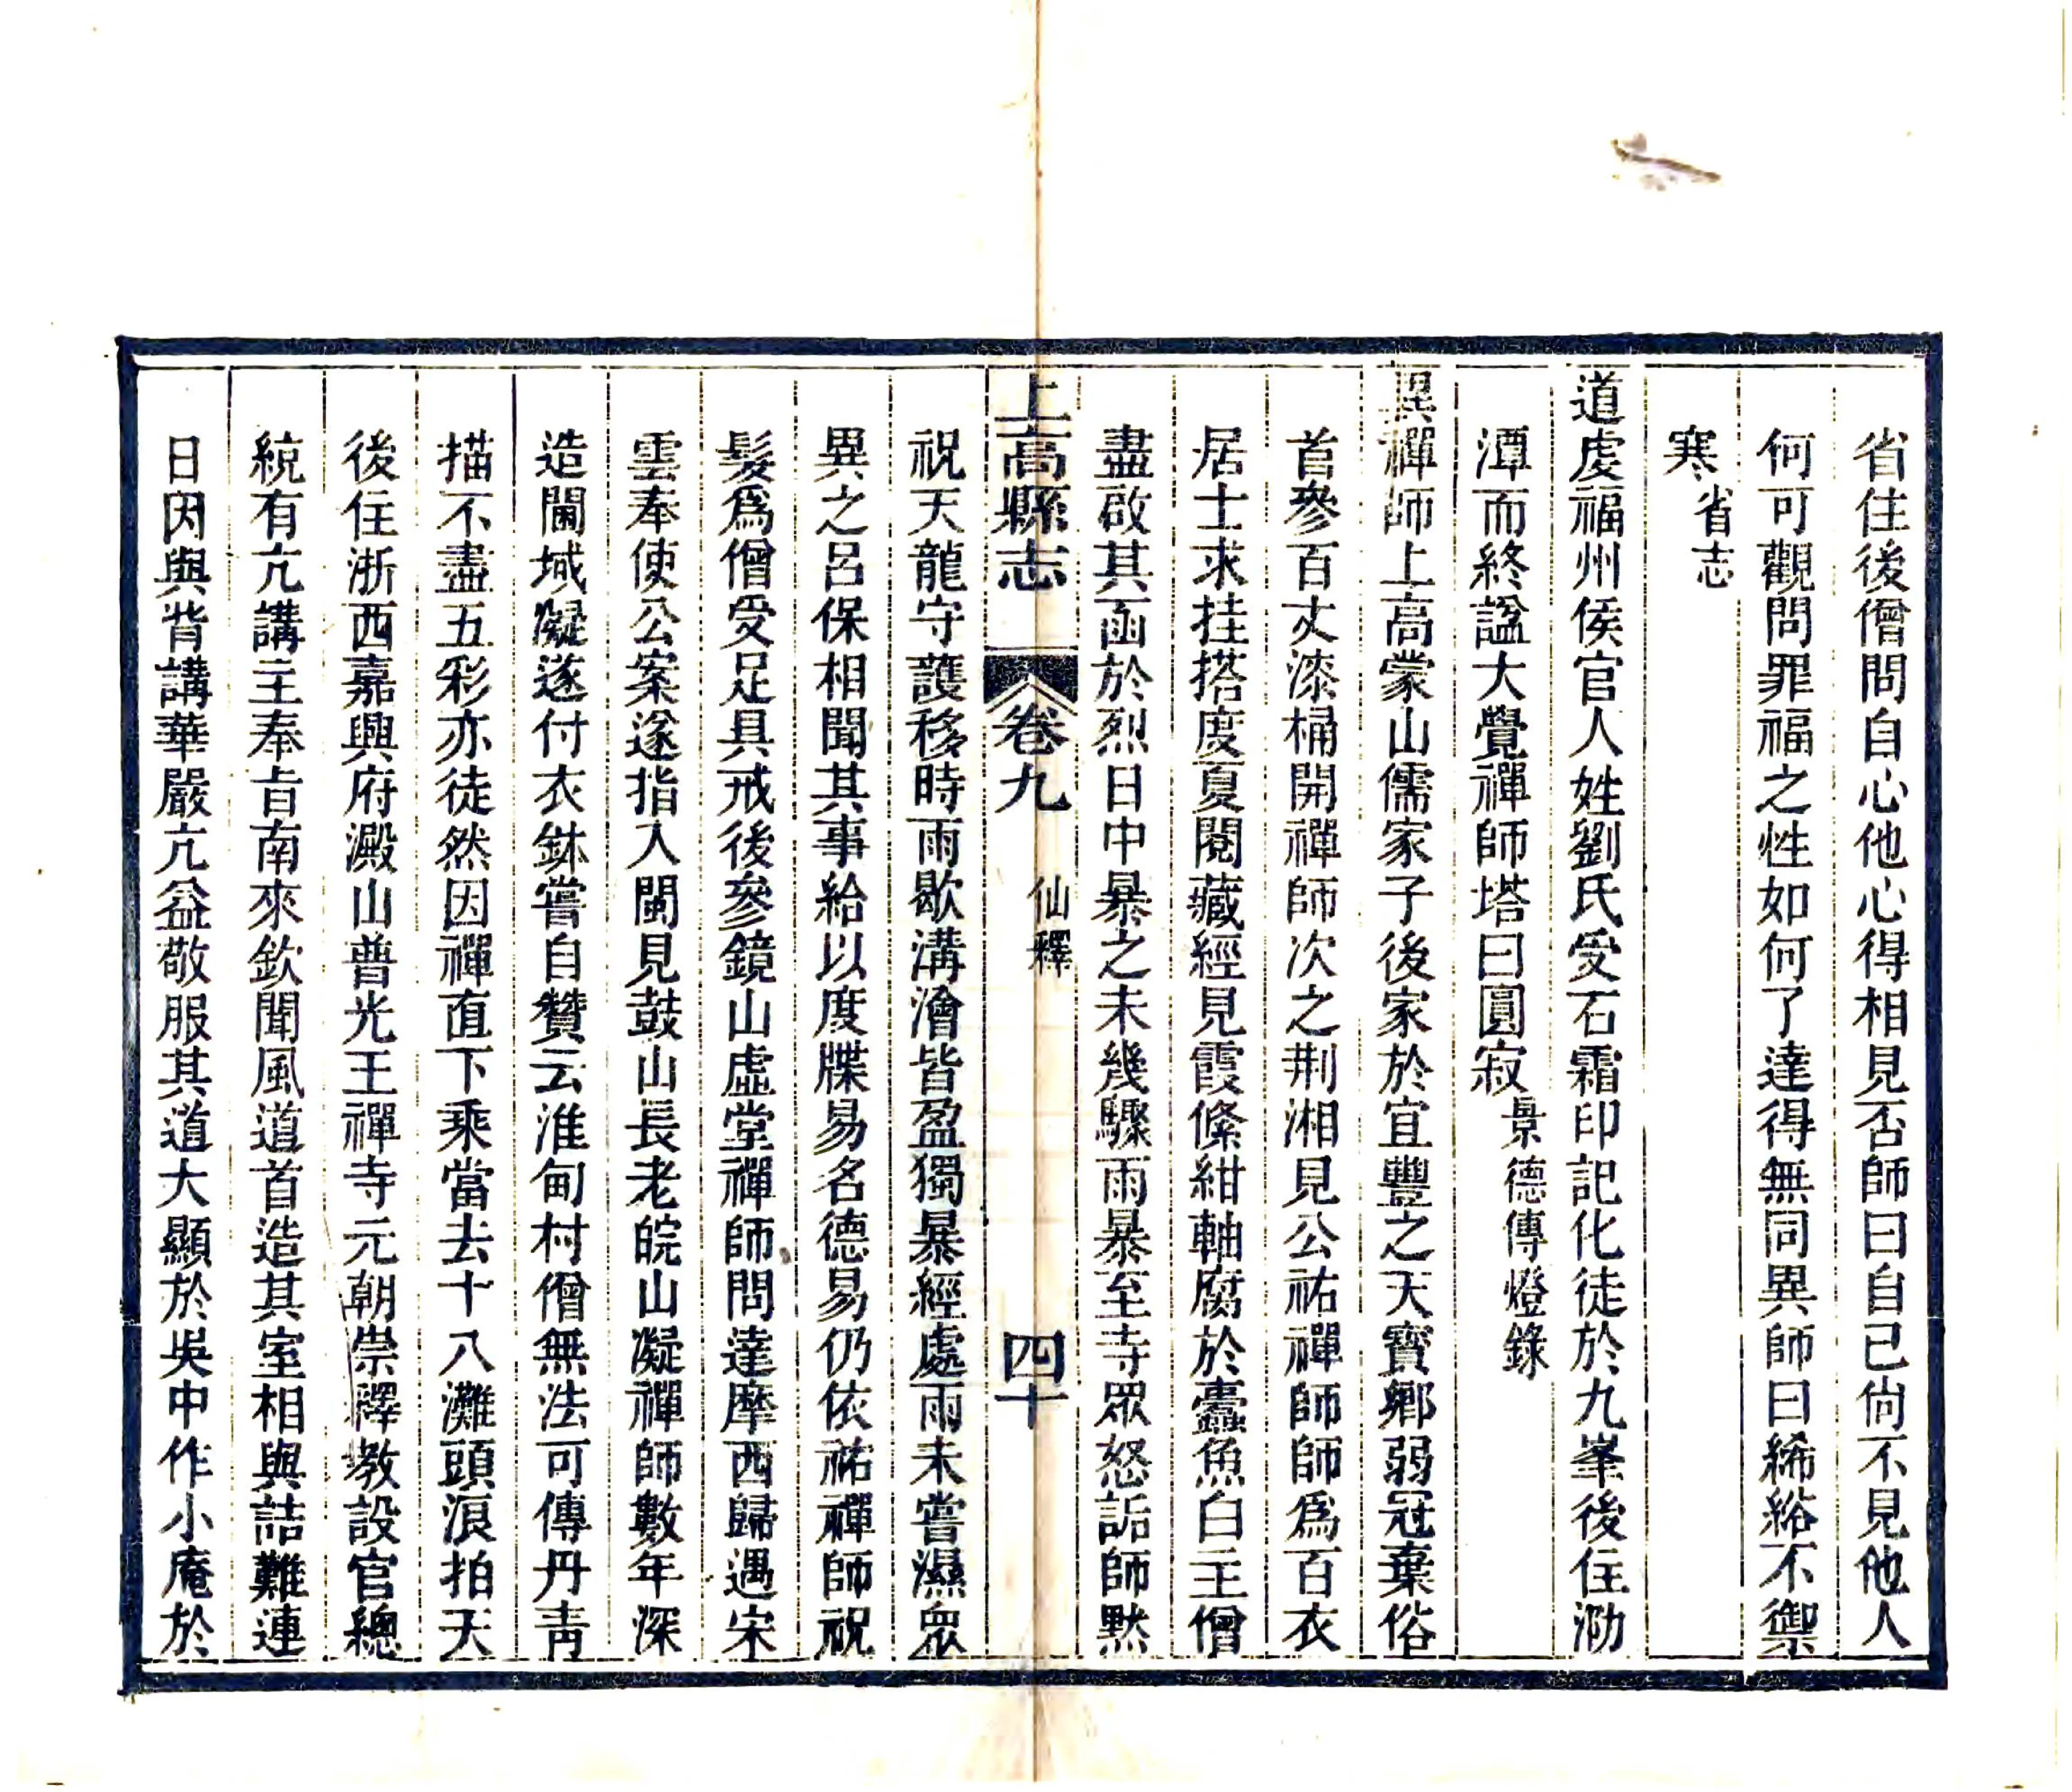 省住後僧問自心他心得相見否師曰自己尙不見他人
何可觀問罪福之性如何了達得無同異師曰絺綌不禦
寒省志
道虔福州侯官人姓劉氏受石霜印記化徒於九峯後住泐
潭而終諡大覺禪師塔曰圓寂景德傳燈錄
異禪師上高蒙山儒家子後家於宜豐之天寶鄉弱冠棄俗
首參百丈漆桶開禪師次之荆湘見公祐禪師師爲百衣
居士求挂搭度夏閱藏經見霞絛紺軸腐於蠹魚白主僧
盡啟其函於烈日中暴之未幾驟雨暴至寺眾怒詬師黙
上高縣志 卷九 仙釋 四十
祝天龍守護移時雨歇溝澮皆盈獨暴經處雨未嘗濕眾
異之呂保相聞其事給以度牒易名德易仍依祐禪師祝
髮爲僧受足具戒後參鏡山虛堂禪師問達摩西歸遇宋
雲奉使公案遂指入閩見鼓山長老皖山凝禪師數年深
造閫域凝遂付衣鉢嘗自贊云淮甸村僧無法可傳丹靑
描不盡五彩亦徒然因禪直下乘當去十八灘頭浪拍天
後住浙西嘉興府澱山普光王禪寺元朝崇釋教設官總
統有亢講主奉旨南來欽聞風道首造其室相與詰難連
日因與背講華嚴亢益敬服其道大顯於吳中作小庵於